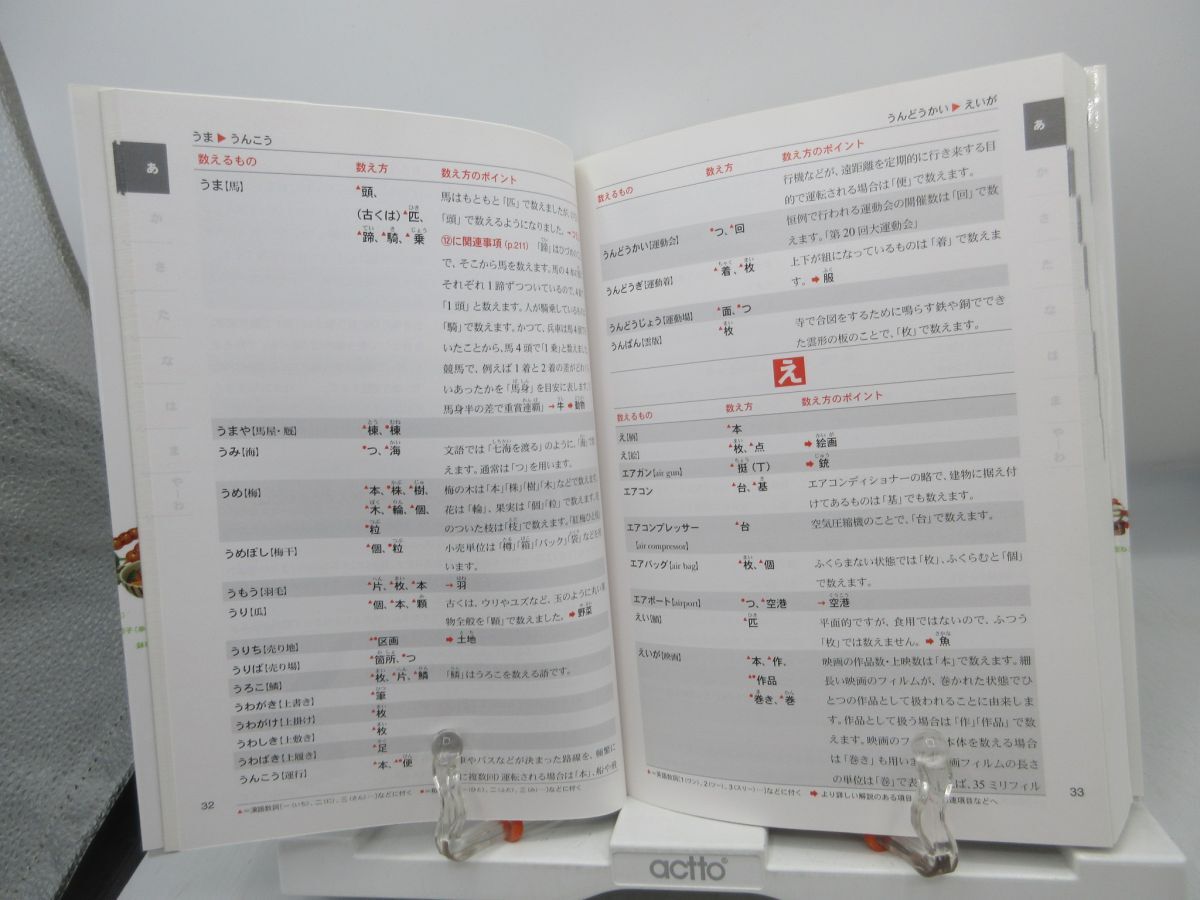 うま▶うんこう
あ
数えるもの 数え方 数え方のポイント
うま【馬】 ▲頭、
(古くは)▲匹、
▲蹄、▲騎、▲乗
馬はもともと「匹」で数えましたが、
「頭」で数えるようになりました。
⑫に関連事項(p.211) 「蹄」はひづめ
で、そこから馬を数えます。馬の4
それぞれ1蹄ずつついているので、4
「1頭」と数えます。人が騎乗している
「騎」で数えます。かつて、兵車は馬4
いたことから、馬4頭で「1乗」と数えまし
競馬で、例えば1着と2着の差がどれ
いあったかを「馬身」を目安に表します。
馬身半の差で重賞連覇」→牛 ➡動物
うまや【馬屋・厩】 ▲棟、●棟
うみ【海】 ●つ、▲海
文語では「七海を渡る」のように、「海」で
えます。通常は「つ」を用います。
うめ【梅】 ▲本、●株、▲樹、
▲木、▲輪、▲個、
●粒
梅の木は「本」「株」「樹」「木」などで数えます。
花は「輪」、果実は「個」「粒」で数えます。花
のついた枝は「枝」で数えます。「紅梅ひと枝」
うめぼし【梅干】 ▲個、●粒
小売単位は「樽」「箱」「パック」「袋」などを用
います。
うもう【羽毛】 ▲片、▲枚、▲本 →羽
うり【瓜】 ▲個、▲本、▲顆
古くは、ウリやユズなど、玉のように丸い果
物全般を「顆」で数えました。➡野菜
うりち【売り地】 ▲●区画 ➡土地
うりば【売り場】 ▲箇所、●つ
うろこ【鱗】 ▲枚、▲片、▲鱗 「鱗」はうろこを数える語です。
うわがき【上書き】 ▲筆
うわがけ【上掛け】 ▲枚
うわしき【上敷き】 ▲枚
うわばき【上履き】 ▲足
うんこう【運行】 ▲本、▲便
車やバスなどが決まった路線を、頻繁に
に複数回)運転される場合は「本」、船や飛
32
▲=漢語数詞[一(いち)、二(に)、三(さん)…]などに付く
一(ひと)、二(ふた)、三(み)…]などに付く
うんどうかい▶えいが
あ
か
さ
た
な
は
ま
や─わ
数えるもの 数え方 数え方のポイント
行機などが、遠距離を定期的に行き来する目
的で運転される場合は「便」で数えます。
うんどうかい【運動会】 ●つ、▲回
恒例で行われる運動会の開催数は「回」で数
えます。「第20回大運動会」
うんどうぎ【運動着】 ▲着、▲枚
上下が組になっているものは「着」で数えま
す。➡服
うんどうじょう【運動場】 ▲面、●つ
うんぱん【雲版】 ▲枚
寺で合図をするために鳴らす鉄や銅ででき
た雲形の板のことで、「枚」で数えます。
え
数えるもの 数え方 数え方のポイント
え【柄】 ▲本
え【絵】 ▲枚、▲点 ➡絵画
エアガン【air gun】 ▲挺(丁) ➡銃
エアコン ▲台、▲基
エアコンディショナーの略で、建物に据え付
けてあるものは「基」でも数えます。
エアコンプレッサー ▲台
【air compressor】
空気圧縮機のことで、「台」で数えます。
エアバッグ【air bag】 ▲枚、▲個
ふくらまない状態では「枚」、ふくらむと「個」
で数えます。
エアポート【airport】 ●つ、▲空港 →空港
えい【鱝】 ▲匹
平面的ですが、食用ではないので、ふつう
「枚」では数えません。➡魚
えいが【映画】 ▲本、▲作、
▲●作品
●巻き、▲巻
映画の作品数・上映数は「本」で数えます。細
長い映画のフィルムが、巻かれた状態でひ
とつの作品として扱われることに由来しま
す。作品として扱う場合は「作」「作品」で数
えます。映画のフィルム本体を数える場合
は「巻き」も用います。映画フィルムの長さ
の単位は「巻」で表し、例えば、35ミリフィル
▲=英語数詞[1(ワン)、2(ツー)、3(スリー)…]などに付く ➡より詳しい解説のある項目 連項目などへ
33
actto